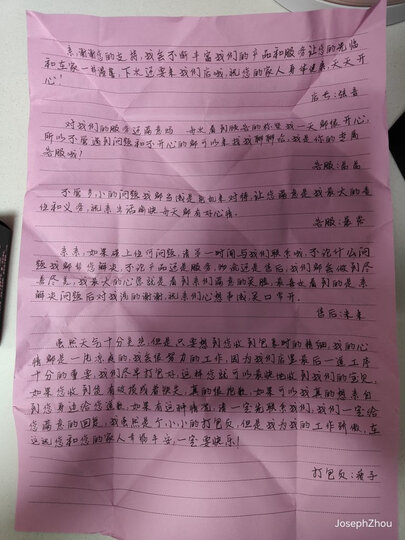 亲,谢谢您的支持,我会不断丰富我们的产品和服务让您的光临
和在家一样温馨,下次还要来我们店哦,祝您的家人身体健康,天天开
心!
店长:
对我们的服务还满意吗 每次看到微笑的你是我一天都很开心,
所以不管遇到问题和不开心的都可以来找我聊聊哈,我是你的专属
客服哦!
客服:晶晶
不管多小的问题我都当成是自家来对待,让您满意是我最大的责
任和义务,祝亲生活愉快每天都有好心情。
客服:
亲亲,如果碰上任何问题,请第一时间与我们联系哦,不论什么问
题我都帮您解决,不论产品还是服务,的确还是售后,我们都会做到尽
善尽美,我最大的心愿就是看到亲们满意的笑脸,最喜欢看到的是亲
解决问题后对我说的谢谢,祝亲们心想事成,笑口常开。
售后:来来
虽然天气十分炎热,但是只要想到您收到包裹时的情绪,我的心
情都是一阵凉爽的,我会很努力的工作,因为我们店里最后一道工序
十分的重要,我们尽早打包好,这样您就可以最快地收到我们的宝贝,
如果您收到货有破损或者缺失,真的很抱歉,如果可以我真的想亲自
到您身边给您道歉,如果有这种情况,请一定先联系我们,我们一定给
您满意的回复,我虽然是个小小的打包员,但是我为我的工作骄傲,在
这祝您和您的家人幸福平安,一定要快乐!
打包员:
JosephZhou